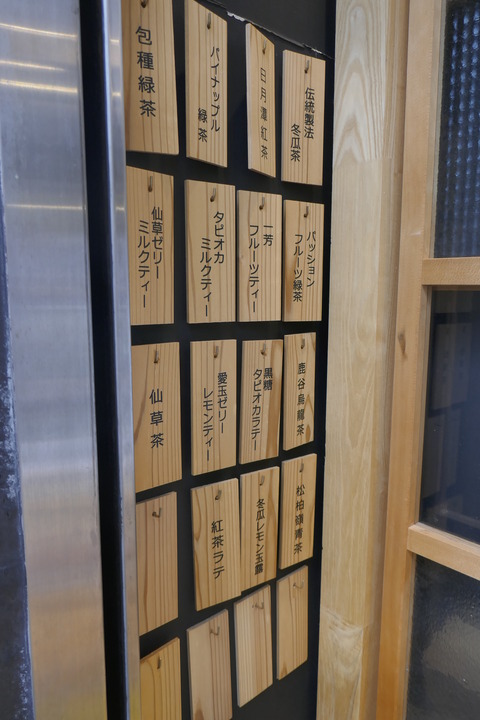 伝統製法
冬瓜茶
日月潭紅茶
パイナップル
緑茶
包種緑茶
パッション
フルーツ緑茶
一芳
フルーツティー
タピオカ
ミルクティー
仙草ゼリー
ミルクティー
鹿谷烏龍茶
黒糖
タピオカラテ
愛玉ゼリー
レモンティー
仙草茶
松柏嶺青茶
冬瓜レモン玉露
紅茶ラテ